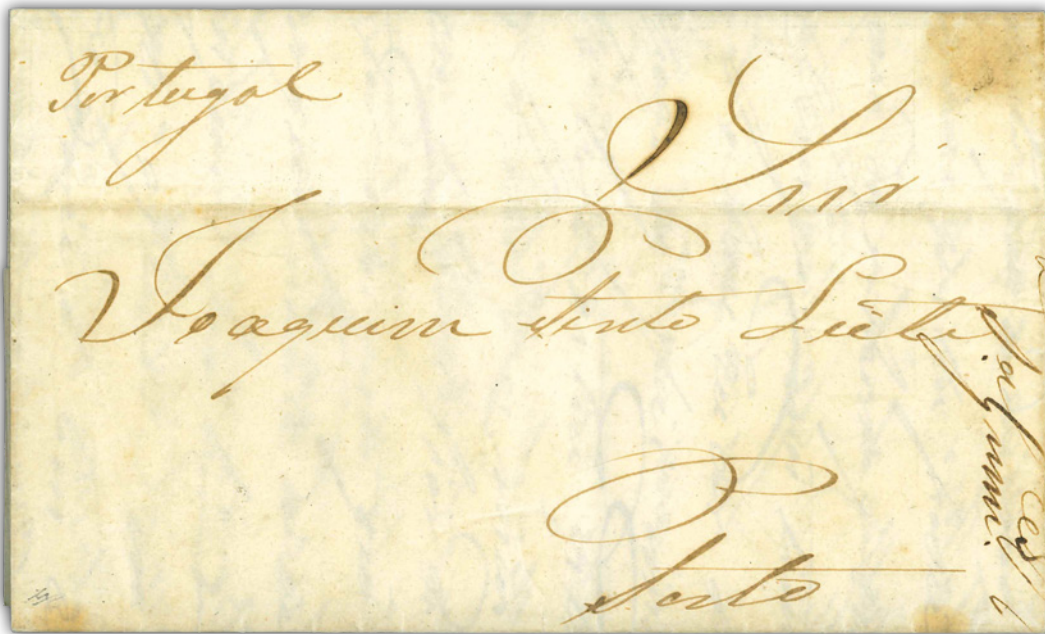 Portugal
Snr
Joaquim Pinto Leite
Porto